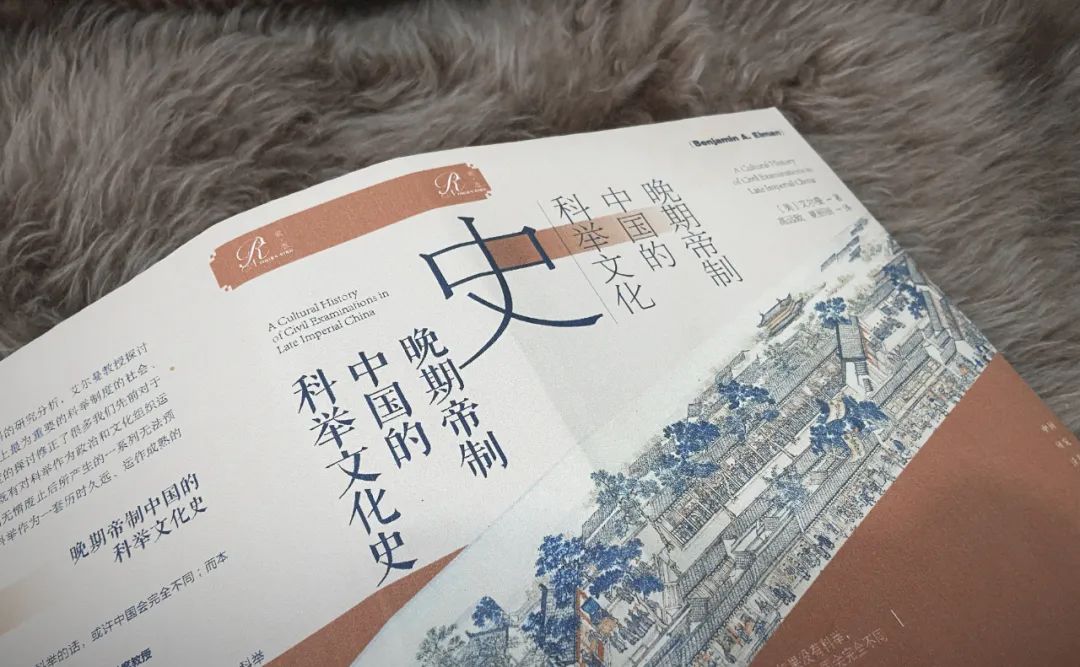 Benjamin A. Elman
A Cultural History
of Civil Examinations in
Late Imperial China
〔美〕艾尔曼 著
晚期帝制
中国的
科举文化
史
R
R
A Cultural History
of Civil Examinations in
Late Imperial China
晚期帝制
中国的
科举文化史
的研究分析，艾尔曼教授探讨
上最为重要的科举制度的社会、
的探讨修正了很多我们先前对于
有对科举作为政治和文化组织运
无情废止后所产生的一系列无法预
举作为一套历时久远、运作成熟的
晚期帝制中国的
科举文化史
科举的话，或许中国会完全不同；而本
教授
科举
果没有科举，
会完全不同